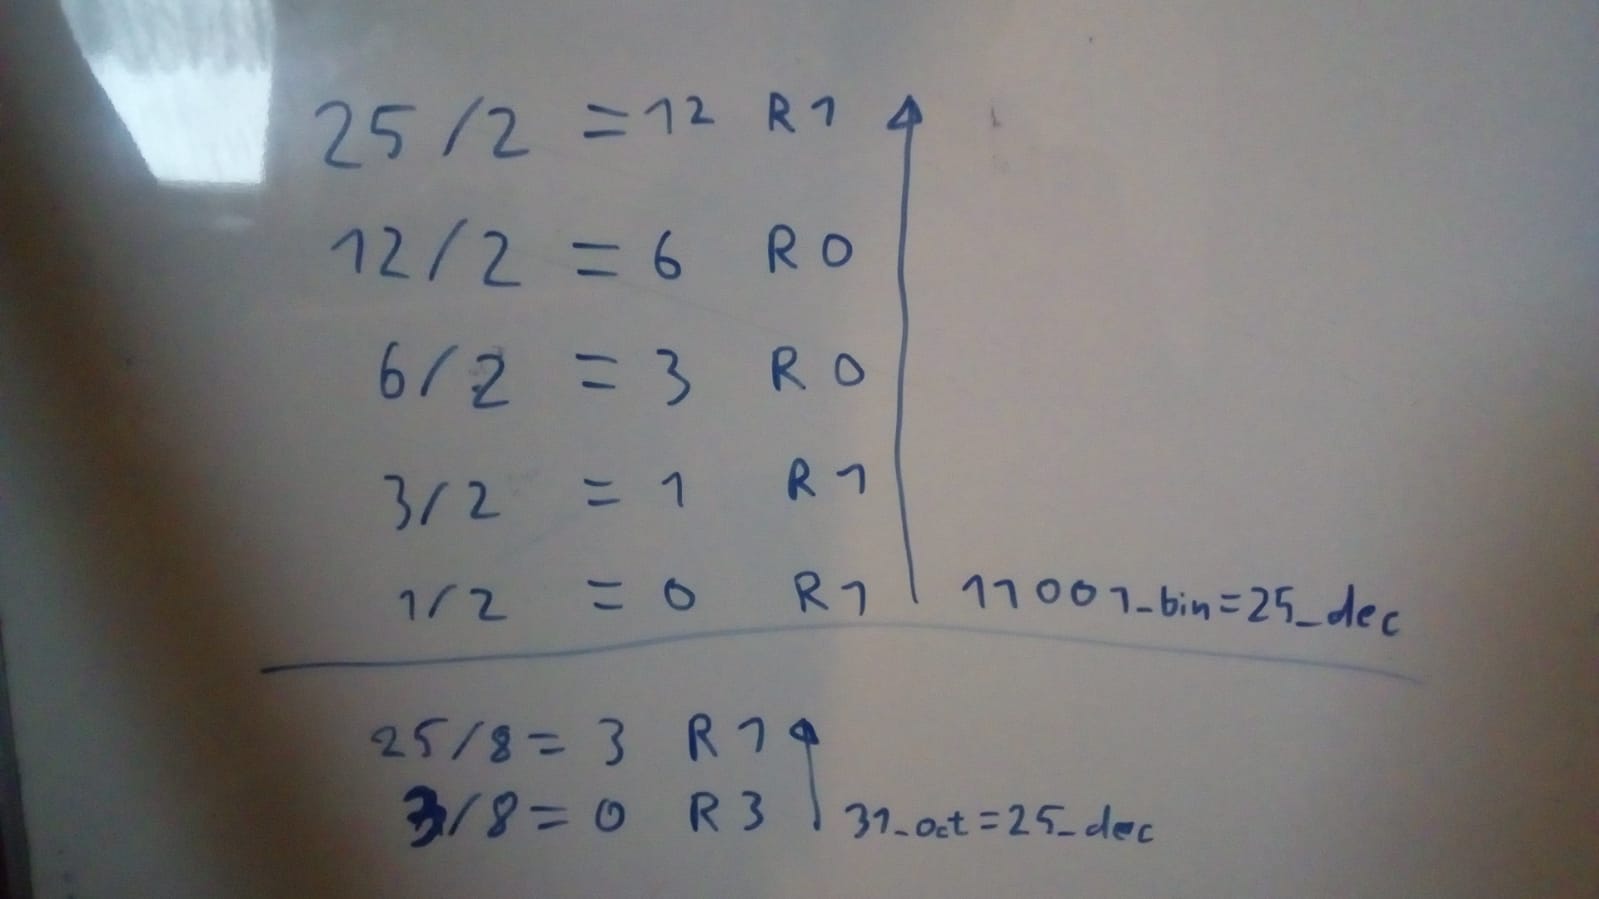 25/2 = 12 R1
12/2 = 6 R0
6/2 = 3 R0
3/2 = 1 R1
1/2 = 0 R1 11001_bin=25_dec
25/8 = 3 R1
3/8 = 0 R3 31_oct=25_dec